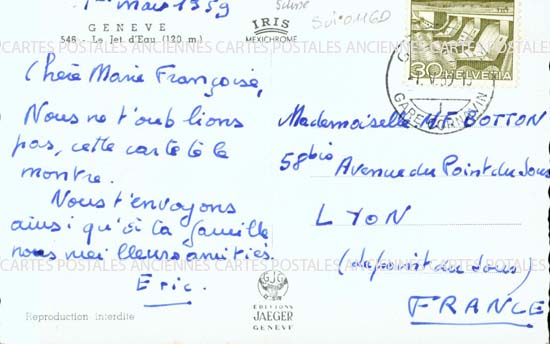 1er mai 1959
Suisse
Sui-OMGD
GENEVE
546 - Le Jet d'Eau (120 m.)
IRIS
MEXICHROME
30 HELVETIA
CARTES POSTALES ANCIENNES CARTES POSTALES ANCIENNES CARTES POSTALES
Chère Marie Françoise,
Nous ne t'oublions
pas, cette carte te le
montre.
Nous t'envoyons
ainsi qu'à ta famille
nous meilleurs amitiés.
Eric.
Mademoiselle M.F. BOTTON
58 bis Avenue du Point du Jour
LYON
(du point du Jour)
FRANCE
CARTES POSTALES ANCIENNES CARTES POSTALES ANCIENNES CARTES POSTALES
EDITIONS
JAEGER
GENEVE
Reproduction interdite